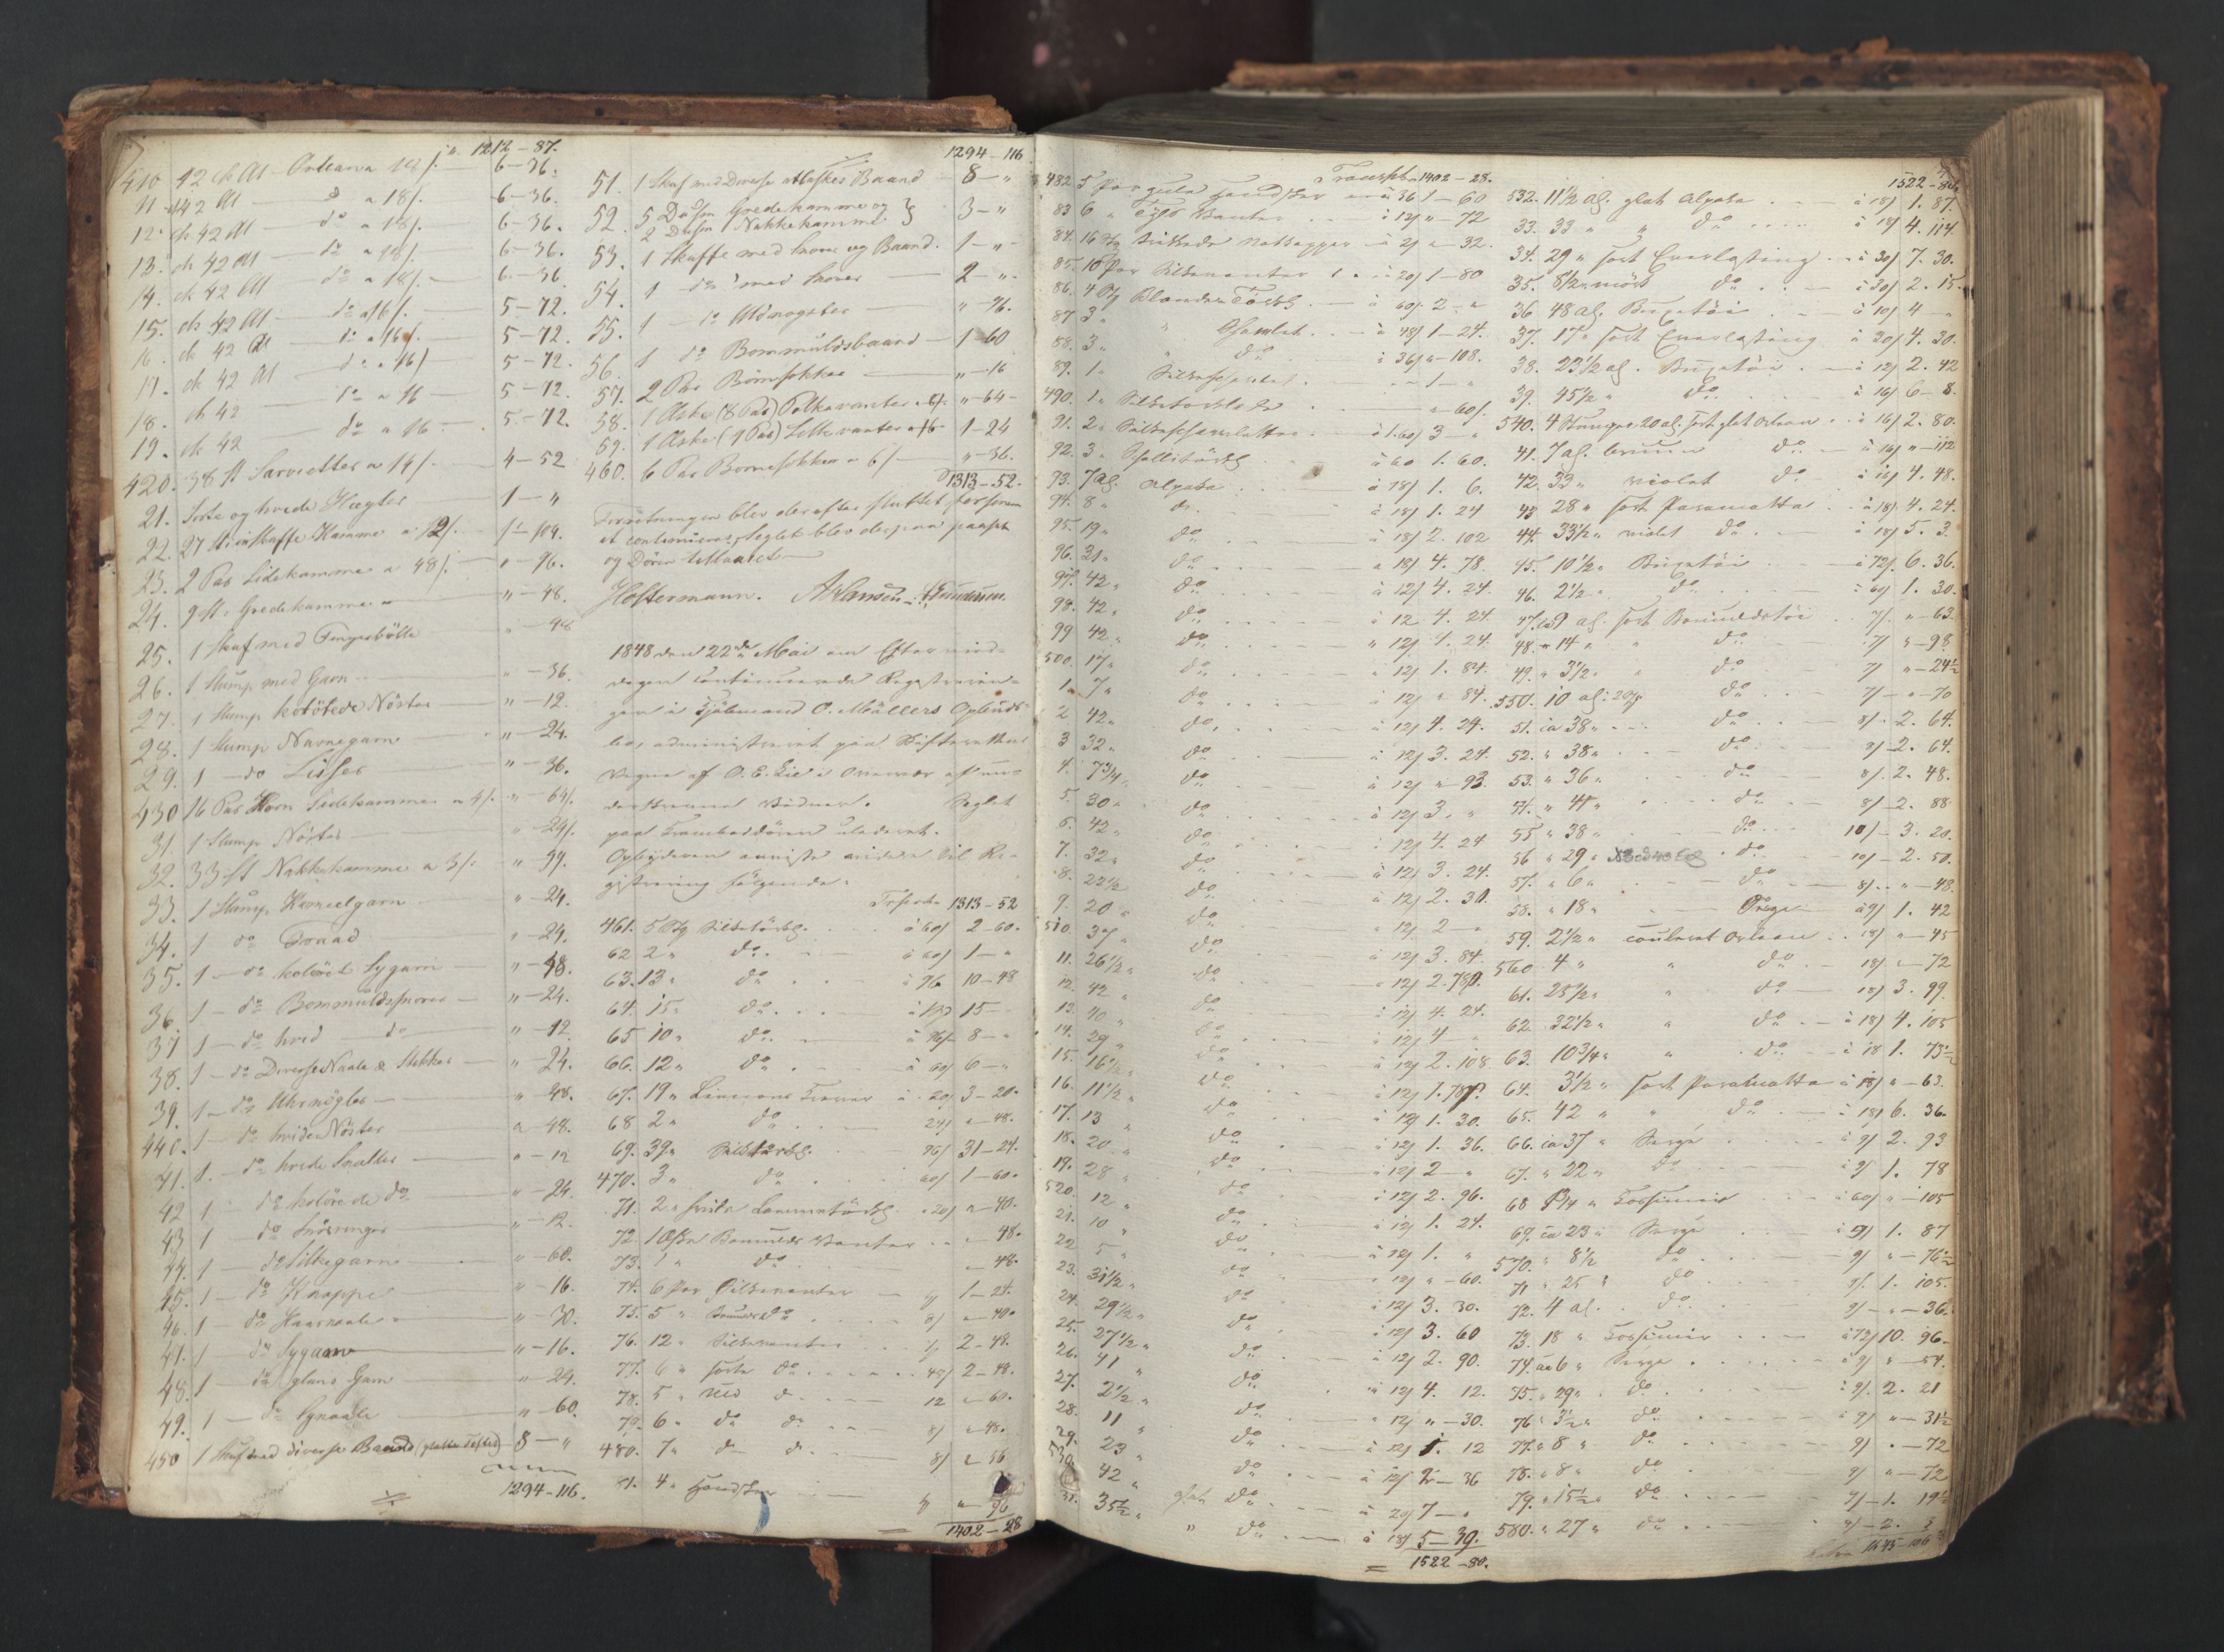 1212 – 87.
410 42 ch Al Orleans a 18/. 6 – 36.
11 42 Al – do a 18/. 6 – 36.
12 ch 42 Al – do a 18/. 6 – 36.
13. ch 42 Al – do a 18/. 6 – 36.
14. ch 42 Al – do a 18/. 6 – 36
15. ch 42 Al – do a 16/. 5 – 72.
16. ch 42 Al – do a 16/. 5 – 72.
17. ch 42 Al – do a 16/ 5 – 72.
18. ch 42 – do a 16 5 – 72.
19. ch 42 – do a 16 5 – 72.
420. 38 st Servietter a 14/. 4 – 52
21. Sorte og hvide Hægter 1 – "
22. 27 st Kamme a 12/.
23. 2 Par Sidekamme a 48/. " – 96.
24. 9 st. Gredekamme " – 48.
25. 1 Skuf med Fingerbölle " – 48
26. 1 Stump med Garn " – 36.
27. 1 Stump kolörede Nöster " – 12.
28. 1 Stump Navnegarn " – 24.
29. 1 – do Lidser " – 36.
430 16 Par Horn Sidekamme a 4/. " – 64/.
31. 1 Stump Nöster " – 24/.
32. 33 st Nakkekamme a 3/. " – 99.
33. 1 Stump Kameelgarn " – 24.
34. 1 do Traad " – 24.
35. 1 – do kolört Sygarn " – 48.
36. 1 – do Bommuldssnore " – 24.
37 1 – do hvid do " – 12
38. 1 – do Diverse Naale & Stikker " – 24.
39. 1 – do Uhrnögler " – 48.
440. 1 – do hvide Nöster " – 48.
41. 1 – do hvide " – 12
42 1 do kolörede do " – 24.
43 1 do Snöreringe " – 12.
44. 1 – do Silkegarn " – 60.
45. 1 – do Knappe " – 16.
46. 1 – do Haarnaale " – 30.
47. 1 do Sygarn " – 16.
48. 1 – do glans Garn " – 24.
49. 1 – do Synaale " – 60.
450 1 Skuf med diverse Baand 8 – "
1294 – 116.
1294 – 116
51. 1 Skuf med Diverse Baand 8 – "
52. 5 Dusin Gredekamme og
2 Dusin Nakkekamme 3 – "
53. 1 Skuffe med Snore og Baand. 1 – "
54. 1 do med Snore 2 – "
55. 1 – do Uhrnögler " – 96.
56. 1 do Bommuldsbaand – 1 – 60
57. 2 Par Börnesokker " – 16
58. 1 Æske (8 Par) Polkavanter a 8/. " – 64
59. 1 Æske (9 Par) vanter 1 – 24
460. 6 Par Börnesokker a 6/ " – 36.
1313 – 52.
Forretningen blev derefter sluttet for
at continueres, Seglet blev derpaa
og Dören
Hostermann. A Hansen
1848 den 22de Mai om Eftermid-
dagen continueredes Registrerin-
gen i Kjöbmand O. Möllers Opbuds-
bo, administreret paa Skifterettens
Vegne af O. E. Lie i Overvær af un-
dertegnede Vidner. Seglet
paa Kramboddören
Opbyderen anviste videre til Re-
gistrering følgende:
Trsport 1313 – 52
461. 5 St Silketörkl. à 60/ 2 – 60.
62 2 " do à 60/ 1 – "
63. 13 " do à 96 10 – 48
64. 15 " do 15 –
65 10 " do à 96/ 8 – "
66. 12 " do à 60/ 6 – "
67. 19 " Kraver à 20/ 3 – 20.
68 2 " do 24/ " – 48.
69. 39 " Silketörkl. 96/ 31 – 24.
470. 3 " do 60/ 1 – 60.
71. 2 " hvide Lommetörkl. 20/ " – 40.
72. 1 Æske Bomulds Vanter " – 48.
73. 1 " do " – 48.
74. 6 Par Silkevanter 1 – 24.
75. 5 " do 8/ " – 40.
76. 12 " Silkevanter 2 – 48.
77. 6 " sorte do 48/ 2 – 48.
78. 5 " do 12 " – 60.
79. 6 " do do 8/ " – 48.
480. 7 " do do 8/ " – 56
81. 4 " Handsker " – 96
1402 – 28
Transport 1402 – 28.
482 5 Par gule Handsker à 36 1 – 60
83 6 " Vanter à 12/ " – 72
84. 16 strikkede Natkapper à 2/ " – 32.
85. 10 Par Silkevanter à 20/ 1 – 80
86. 4 St Blonde Törkl. à 60/. 2 – "
87 3 " " à 48/ 1 – 24.
88. 3 " " do à 36/ " – 108.
89. 1 " 1 – "
490. 1 " " – 60/.
91. 2 " à 1.60/ 3 – "
92. 3 " à 60 1. 60.
93. 7 al. Alpaka à 18/ 1. 6.
94. 8 " do à 18/ 1. 24
95. 19 " do à 18/ 2. 102
96. 31 " do à 18/ 4. 78.
97. 42 " do à 12/ 4. 24.
98. 42 " do à 12 4. 24.
99 42 " do à 12/ 4. 24.
500. 17 " do à 12/ 1. 84.
1. 7 " do à 12/ " 84.
2 42 " do à 12/ 4. 24.
3 32 " do à 12/ 3. 24.
4. 7 3/4 " do à 12/ " – 93.
5. 30 " do à 12/ 3. "
6. 42 " do à 12/ 4. 24
7. 32 " do à 12/ 3. 24.
8. 22 1/2 do à 12/ 2. 30.
9. 20 " do à 12/ 2 – "
510. 37 " do à 12/ 3. 84.
11. 26 1/2 " do à 12/ 2. 78
12. 42 " do à 12/ 4. 24.
13. 40 " do à 12/ 4 – "
14. 29 " do à 12/ 2. 108
15. 16 1/2 " do à 12/ 1. 78
16. 11 1/2 " do à 12/ 1. 30.
17. 13 " do à 12/ 1. 36.
18. 20 " do à 12/ 2 – "
19. 28 " do à 12/ 2. 96.
520. 12 " do à 12/ 1. 24.
21. 10 " do à 12/ 1. "
22 5 " do à 12/ " – 60.
23. 31 1/2 " do à 12/ 3. 30.
24. 29 1/2 " do à 12/ 3. 60
25. 27 1/2 " do à 12/ 2. 90.
26. 41 " do à 12/ 4. 12.
27. 2 1/2 " do à 12/ " – 30.
28. 11 " do à 12/ 1. 12
29. 23 " do à 12/ 2 – 36
530 42 " glat do à 20/ 7 – "
31. 35 1/2 " " do à 18/ 5 – 39.
1522 – 80.
1522 – 80.
532. 11 1/2 al. glat Alpaka à 18/ 1. 87.
33. 33 " " do à 18/ 4. 114
34. 29 " sort Everlasting à 30/ 7. 30.
35. 8 1/2 " mörk do à 30/ 2. 15.
36 48 al. Buxetöi à 10/ 4 – "
37. 17 " sort Everlasting à 30/ 4. 30.
38. 23 1/2 al. Buxetöi à 12/ 2. 42
39. 45 1/2 " do à 16/ 6 – 8.
540. 4 20 al. sort glat Orlean à 16/ 2. 80.
41. 7 al. bruun do à 16/ " – 112
42. 33 " violet do à 16/ 4. 48.
43 28 " sort Paramatta à 18/ 4. 24.
44. 33 1/2 " violet do à 18/ 5. 3.
45. 10 1/2 " Buxetöi à 72/. 6. 36.
46. 2 1/2 " do à 60/ 1. 30.
47. ca 9 al. sort Bomuldstöi 7/. " – 63.
48. " 14 " " do 7/ " – 98
49. " 3 1/2 " " do 7/ " – 24 1/2
550. 10 al. do 7/ – " – 70
51. ca 38 " do 8/. 2. 64.
52. " 38 " do 8/ – 2. 64.
53. " 36 " do 8/. 2. 48.
54. " 41 " do 8/ – 2. 88
55 " 38 " do 10/ – 3. 20.
56 " 29 " do 10/ – 2. 50.
57. " 6 " do 8/. " – 48.
58. " 18 " à 9/ 1. 42
59. 2 1/2 " couleurt Orlean 18/ " – 45
560. 4 " " do 18/. " – 72
61. 25 1/2 " " do 18/ 3. 99.
62. 32 1/2 " " do à 18/ 4. 105
63. 10 3/4 " " do à 18 1. 73 1/2
64. 3 1/2 " sort Paramatta à 18/ " – 63.
65. 42 " " do à 18/ 6. 36.
66. ca 37 " Serge à 9/ 2. 93
67. " 22 " do à 9/ 1. 78
68 1 3/4 " Cassimir à 60/ " – 105
69. ca 23 " Serge à 9/ 1. 87
570. " 8 1/2 do 9/ " – 76 1/2
71 " 25 " do 9/. 1. 105.
72. 4 al. do 9/ – " – 36.
73. 18 " Cassimir à 72/ 10. 96.
74. ca 6 " Serge à 9/ " – 54.
75. " 29 " do à 9/. 2. 21
76 " 3 1/2 " do à 9/ " – 31 1/2
77. " 8 " do 9/ " – 72
78. " 8 " do 9/ " – 72
79. " 15 1/2 " do 9/ – 1. 19 1/2
580. " 27 " do 9/ – 2. 3